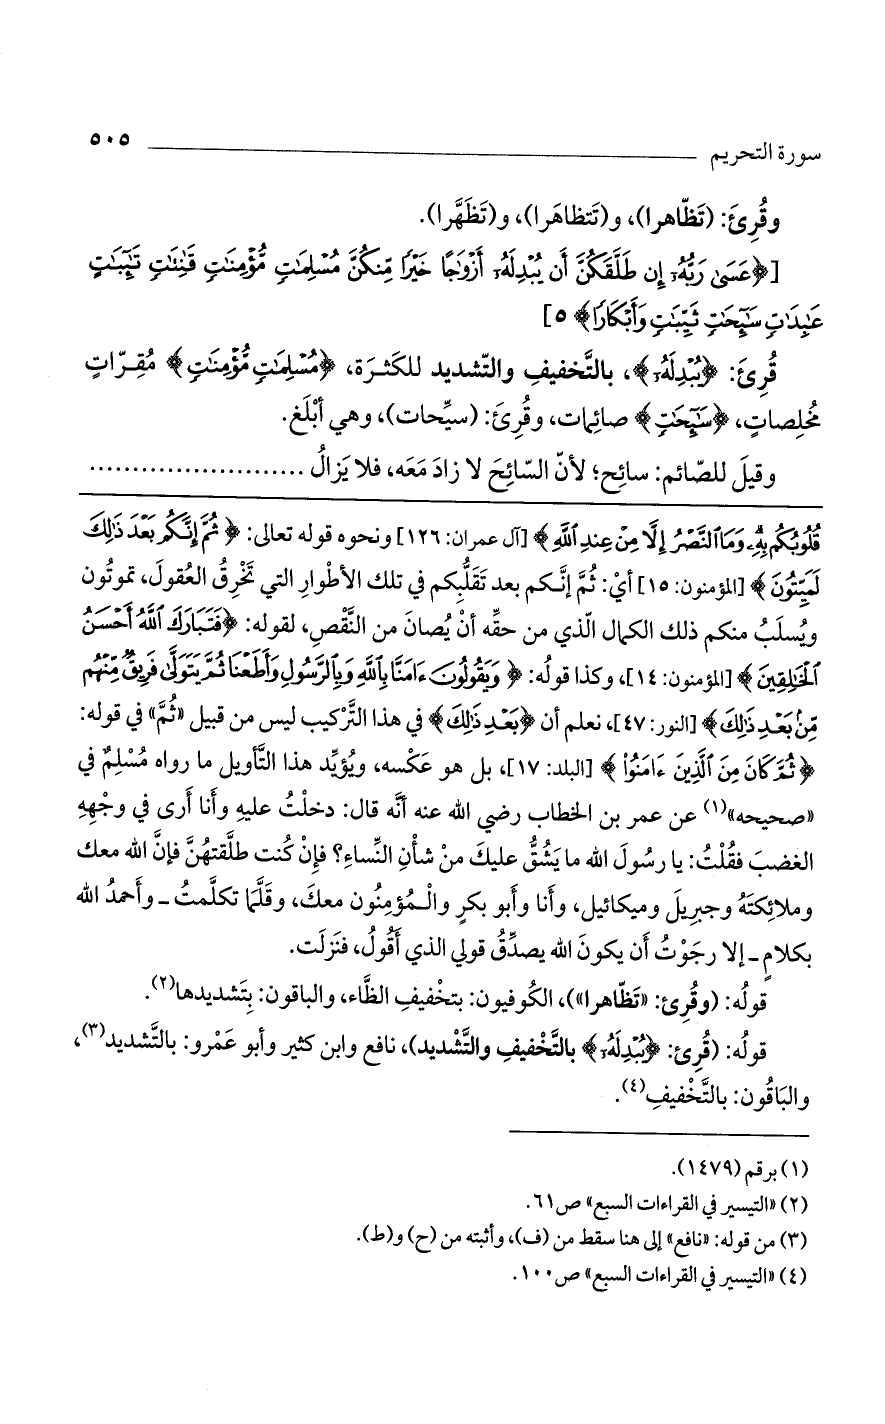 سورة التحريم ٥٠٥
وقُرِئَ: (تَظّاهرا)، و(تَتظاهَرا)، و(تَظَهَّرا).
[﴿عَسَىٰ رَبُّهُۥٓ إِن طَلَّقَكُنَّ أَن يُبْدِلَهُۥٓ أَزْوَٰجًا خَيْرًا مِّنكُنَّ مُسْلِمَٰتٍ مُّؤْمِنَٰتٍ قَٰنِتَٰتٍ تَٰٓئِبَٰتٍ
عَٰبِدَٰتٍ سَٰٓئِحَٰتٍ ثَيِّبَٰتٍ وَأَبْكَارًا﴾ ٥]
قُرِئَ: ﴿يُبْدِلَهُۥٓ﴾، بالتَّخفيفِ والتّشديد للكَثرَة، ﴿مُسْلِمَٰتٍ مُّؤْمِنَٰتٍ﴾ مُقِرّاتٍ
مُخلِصاتٍ، ﴿سَٰٓئِحَٰتٍ﴾ صائِمات، وقُرِئَ: (سيِّحات)، وهي أبْلَغ.
وقيلَ للصّائم: سائِح؛ لأنّ السّائِحَ لا زادَ مَعَه، فلا يَزالُ .........................
قُلُوبُكُم بِهِۦ وَمَا ٱلنَّصْرُ إِلَّا مِنْ عِندِ ٱللَّهِ﴾ [آل عمران: ١٢٦] ونحوه قوله تعالى: ﴿ثُمَّ إِنَّكُم بَعْدَ ذَٰلِكَ
لَمَيِّتُونَ﴾ [المؤمنون: ١٥] أيْ: ثُمَّ إنَّكم بعد تَقَلُّبِكم في تلك الأطْوارِ التي تَخْرِقُ العُقولَ، تموتُون
ويُسلَبُ منكم ذلك الكمال الّذي من حقِّه أنْ يُصانَ من النَّقْصِ، لقوله: ﴿فَتَبَارَكَ ٱللَّهُ أَحْسَنُ
ٱلْخَٰلِقِينَ﴾ [المؤمنون: ١٤]، وكذا قولُه: ﴿وَيَقُولُونَ ءَامَنَّا بِٱللَّهِ وَبِٱلرَّسُولِ وَأَطَعْنَا ثُمَّ يَتَوَلَّىٰ فَرِيقٌ مِّنْهُم
مِّنۢ بَعْدِ ذَٰلِكَ﴾ [النور: ٤٧]، نعلم أن ﴿بَعْدَ ذَٰلِكَ﴾ في هذا التَّرْكيب ليس من قبيل «ثُمَّ» في قوله:
﴿ثُمَّ كَانَ مِنَ ٱلَّذِينَ ءَامَنُوا۟﴾ [البلد: ١٧]، بل هو عَكْسه، ويُؤيِّد هذا التَّأويل ما رواه مُسْلِمٌ في
«صحيحه»(١) عن عمر بن الخطاب رضي الله عنه أنَّه قال: دخلْتُ عليهِ وأنا أرى في وجْهِهِ
الغضبَ فقُلْتُ: يا رسُولَ الله ما يَشُقُّ عليكَ منْ شأْنِ النِّساءِ؟ فإنْ كُنت طلَّقتهُنَّ فإنَّ الله معك
وملائِكتَهُ وجبريلَ وميكائيل، وأنا وأبو بكرٍ والـمُؤمِنُون معكَ، وقَلَّما تكلَّمتُ ـ وأحمدُ الله
بكلامٍ ـ إلا رجَوْتُ أن يكونَ الله يصدِّقُ قولي الذي أقُولُ، فنَزلَت.
قولُه: (وقُرِئ: «تَظّاهرا»)، الكُوفيون: بتخْفيفِ الظَّاء، والباقون: بِتَشديدها(٢).
قولُه: (قُرِئ: ﴿يُبْدِلَهُۥٓ﴾ بالتَّخْفيفِ والتَّشْديد)، نافع وابن كثير وأبو عَمْرو: بالتَّشديد(٣)،
والبَاقُون: بالتَّخْفيفِ(٤).
(١) برقم (١٤٧٩).
(٢) «التيسير في القراءات السبع» ص٦١.
(٣) من قوله: «نافع» إلى هنا سقط من (ف)، وأثبته من (ح) و(ط).
(٤) «التيسير في القراءات السبع» ص١٠٠.